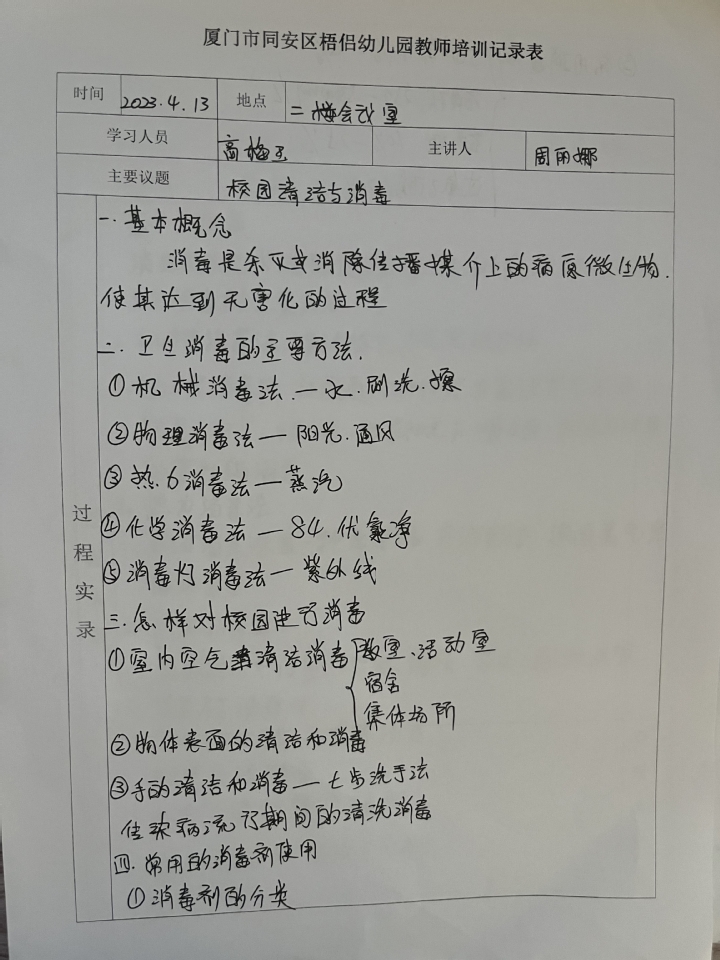 厦门市同安区梧侣幼儿园教师培训记录表
时间 2023.4.13 地点 二楼会议室
学习人员 高梅玉 主讲人 周丽娜
主要议题 校园清洁与消毒
过程实录
一.基本概念
消毒是杀灭或消除传播媒介上的病原微生物.
使其达到无害化的过程
二.卫生消毒的主要方法.
①机械消毒法.一水.刷洗.擦
②物理消毒法一阳光.通风
③热力消毒法一蒸汽
④化学消毒法一84.优氯净
⑤消毒灯消毒法一紫外线
三.怎样对校园进行消毒
①室内空气清洁消毒 教室、活动室
宿舍
集体场所
②物体表面的清洁和消毒
③手的清洁和消毒一七步洗手法
传染病流行期间的清洗消毒
四.常用的消毒剂使用
①消毒剂的分类